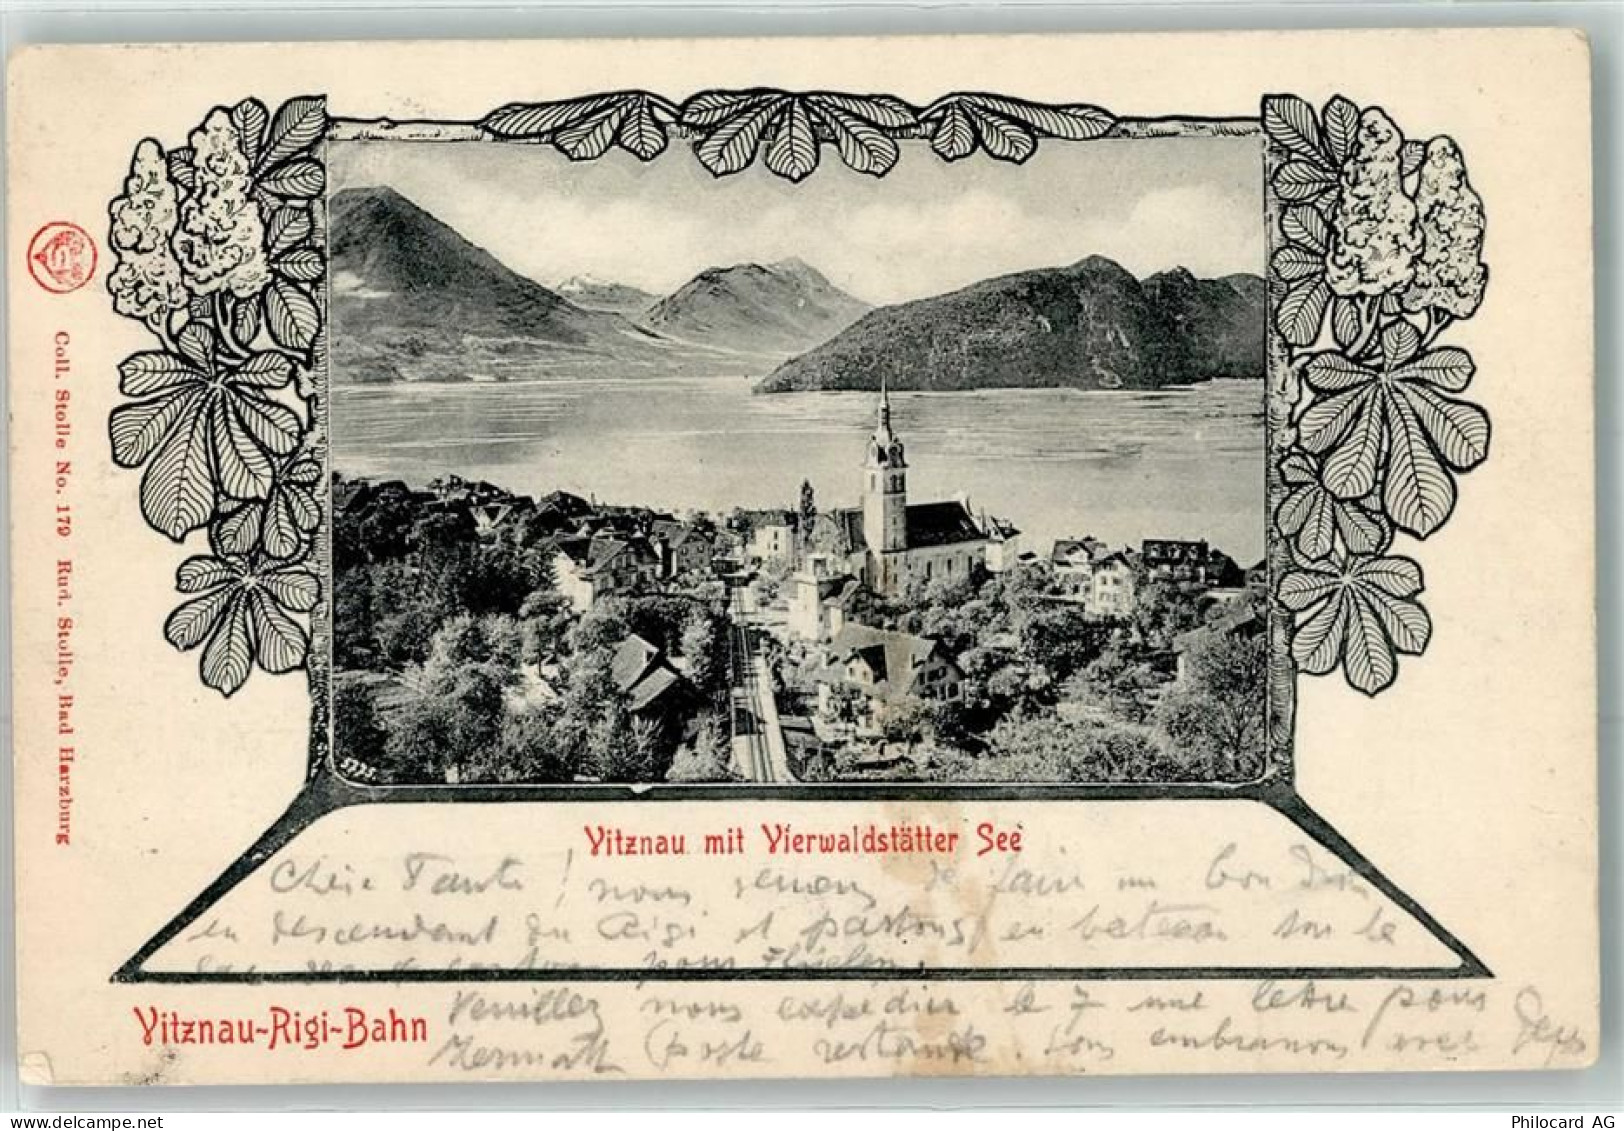 Coll. Stolle No. 179 Rud. Stolle, Bad Harzburg
5775
Vitznau mit Vierwaldstätter See
Chère Tante! nous venons de faire un bon
en descendant du Rigi et partons en bateau sur le
lac pour Flüelen.
Vitznau-Rigi-Bahn
Veuillez nous expédier le 7 une lettre pour
Zermatt (poste restante. embrassons avec
Philocard AG